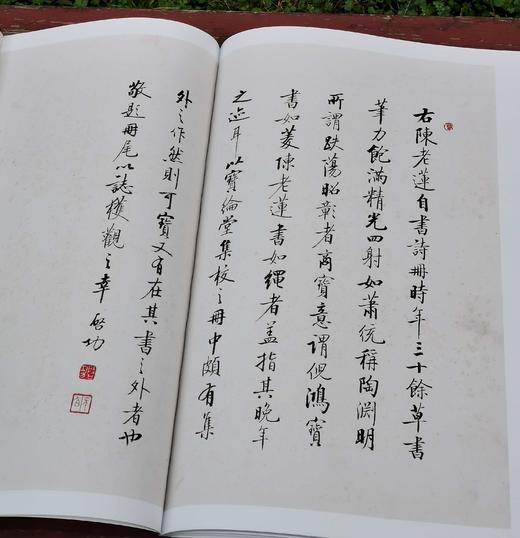 右陳老蓮自書詩冊時年三十餘草書
筆力飽滿精光四射如蕭統稱陶淵明
所謂跌蕩昭彰者商寶意謂倪鴻寶
書如菱陳老蓮書如繩者蓋指其晚年
之迹耳以寶綸堂集校之冊中頗有集
外之作然則可寶又有在其書之外者也
敬題冊尾以誌獲觀之幸 啟功